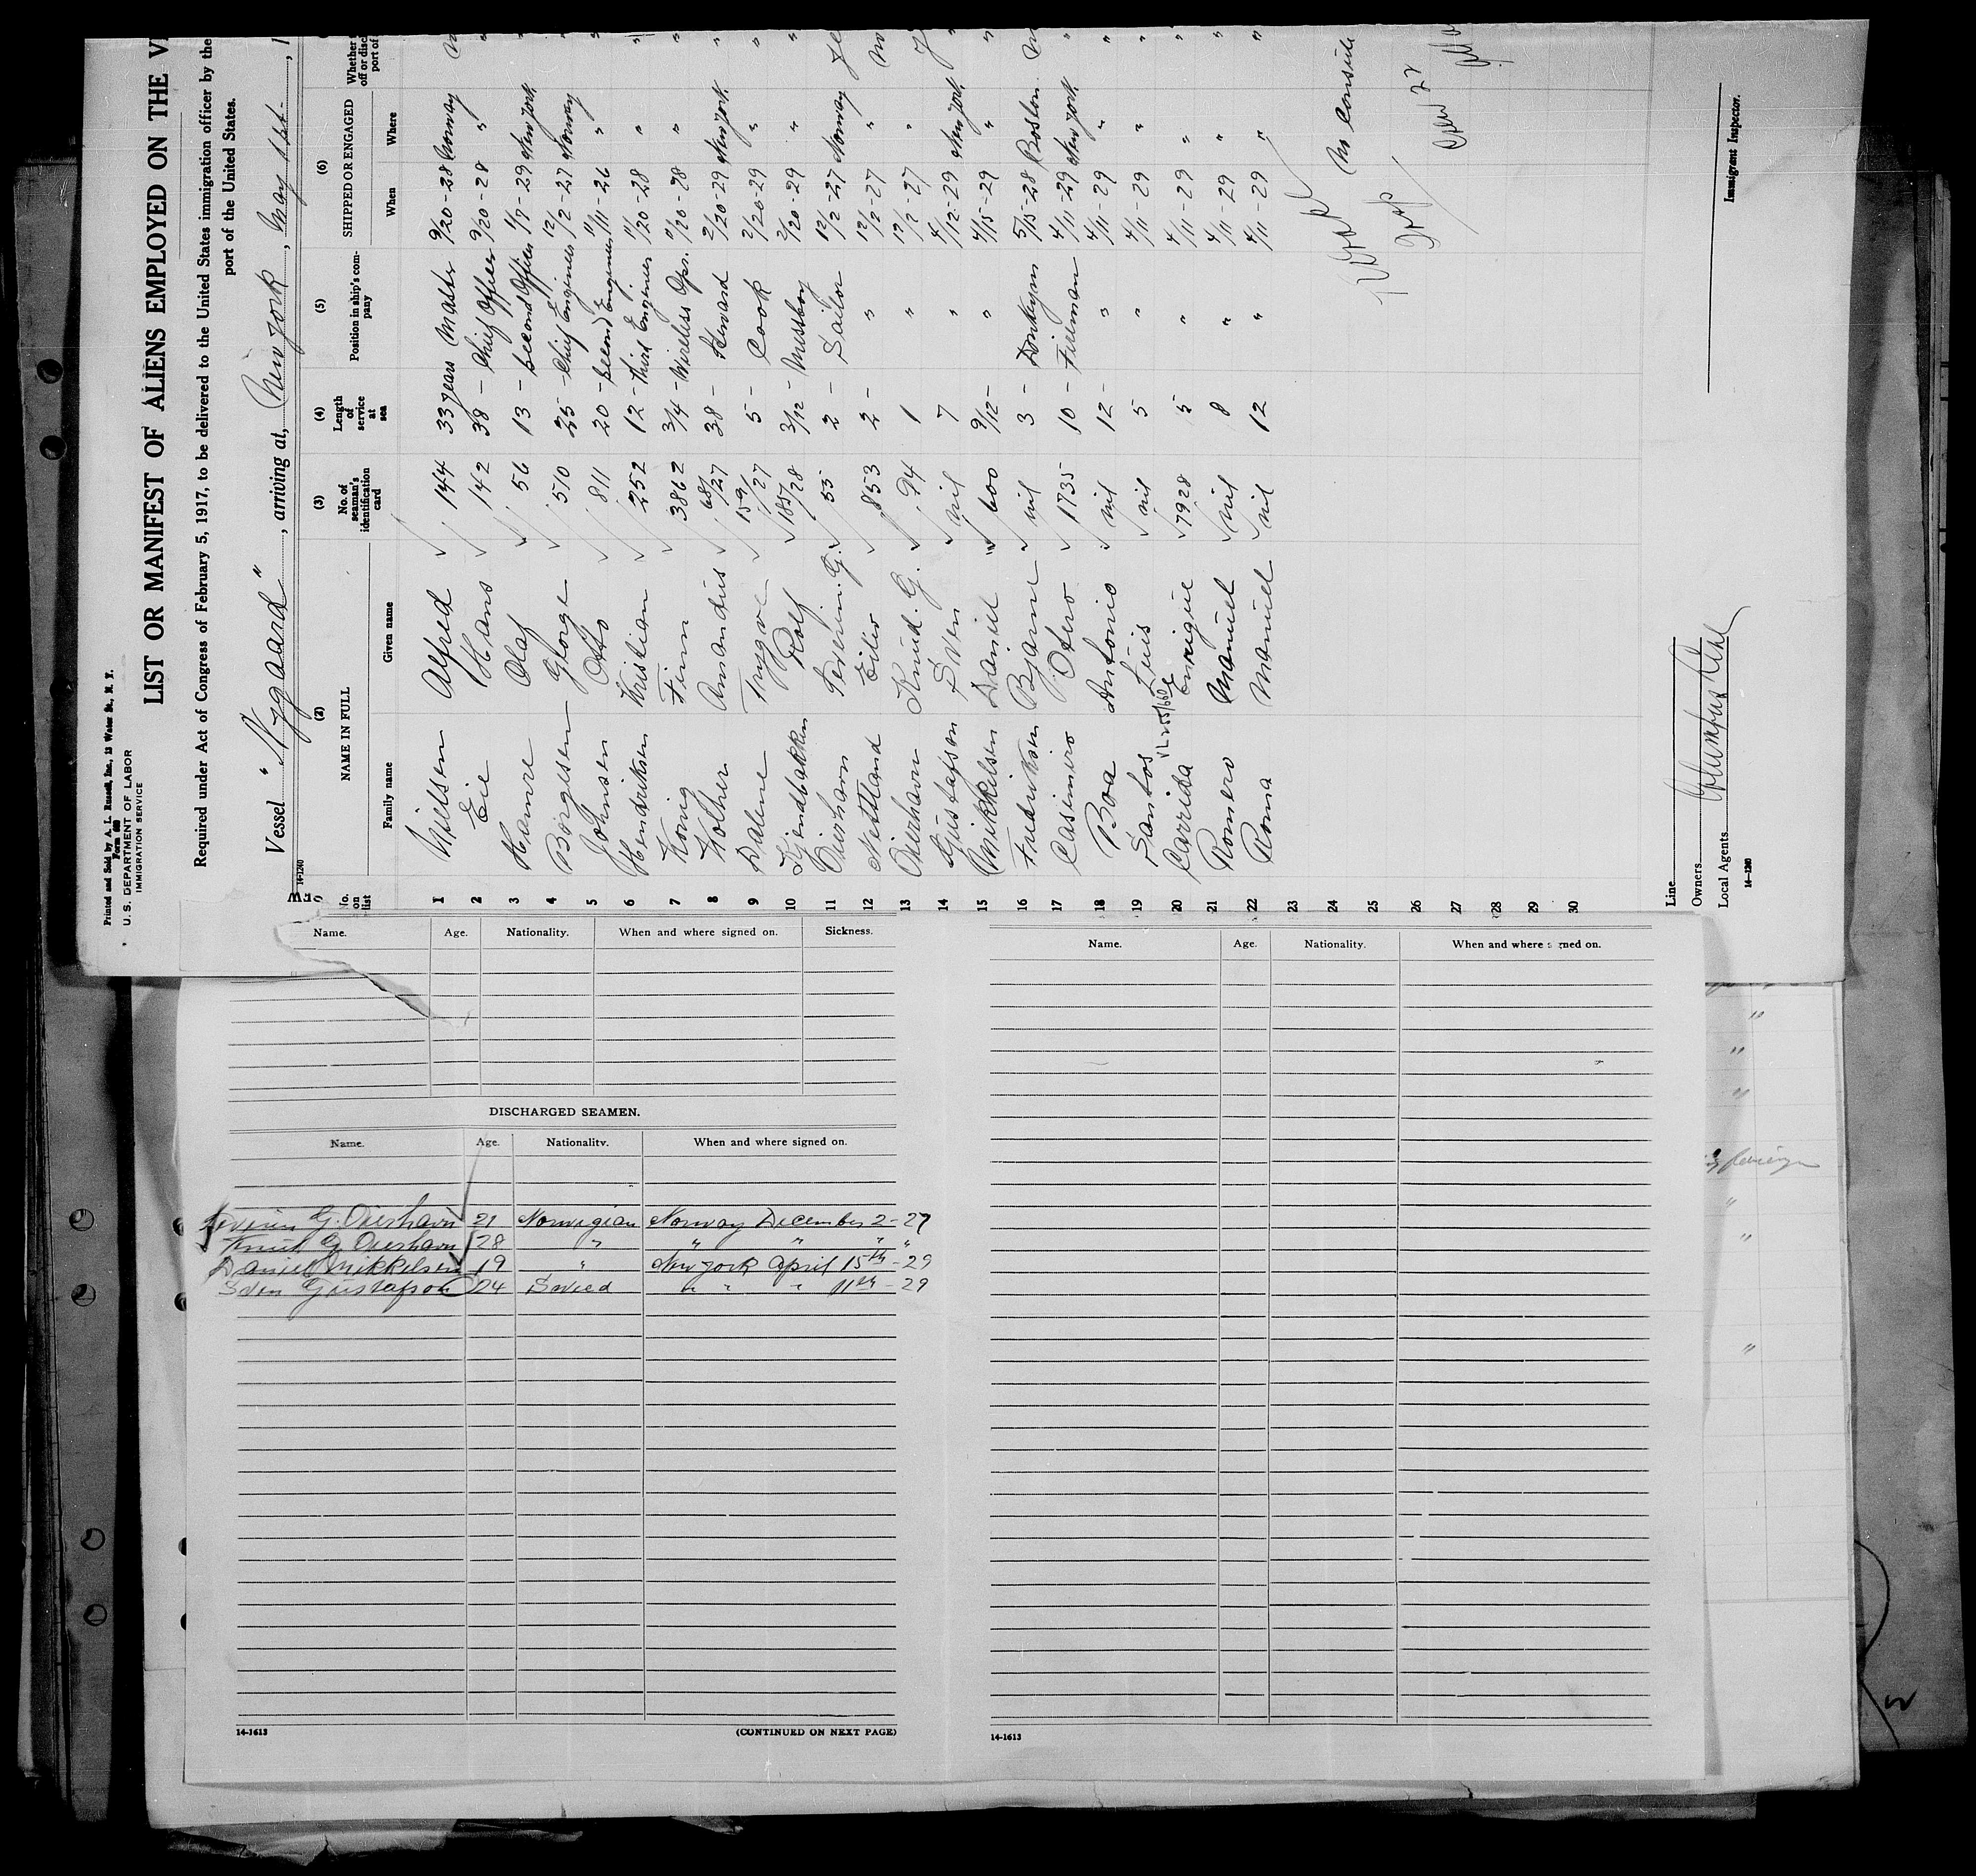 Printed and Sold by A. L. Russell, Inc., 13 Water St., N. Y.
Form 689
U. S. DEPARTMENT OF LABOR
IMMIGRATION SERVICE
LIST OR MANIFEST OF ALIENS EMPLOYED ON THE
Required under Act of Congress of February 5, 1917, to be delivered to the United States immigration officer by the
port of the United States.
Vessel "Nygaard", arriving at, New York, May 1st
14-1240
No. on list
(2) NAME IN FULL
Family name Given name
(3) No. of seaman's identification card
(4) Length of service at sea
(5) Position in ship's company
(6) SHIPPED OR ENGAGED
When Where
Whether
off or disc
port of
1 Nielsen Alfred 144 33 years Master 9/20-28 Norway
2 Eie Hans 142 38 - Chief Officer 9/20-28 "
3 Hamre Olaf 56 13 - Second Officer 1/7-29 New York
4 Borgesen George 510 25 - Chief Engineer 12/2-27 Norway
5 Johnsen Otto 811 20 - Second Engineer 11/11-26 "
6 Hendriksen Kristian 252 12 - Third Engineer 11/20-28 "
7 König Finn 3862 3/4 - Wireless Opr. 11/20-28 "
8 Holher Amandus 68/27 38 - Steward 2/20-29 New York
9 Dalene Trygve 159/27 5 - Cook 2/20-29 "
10 Gjendbakken Rolf 185/28 3/12 - Messboy 2/20-29 "
11 Overhavn Severin. G. 55 2 - Sailor 12/2-27 Norway
12 Nettland Eiliv 853 2 - " 12/2-27 "
13 Overhavn Knud. G. 94 1 " 12/2-27 "
14 Gustafson Sven nil 7 " 4/12-29 New York
15 Mikkelsen Daniel 600 9/12 - " 4/15-29 "
16 Fredriksen Bjarne nil 3 - Donkeyman 5/15-28 Boston
17 Casimiro Otero 1735 10 - Fireman 4/11-29 New York
18 Boa Antonio nil 12 - " 4/11-29 "
19 Santos Luis nil 5 " 4/11-29 "
20 Carrida Enrique 7928 5 " 4/11-29 "
21 Romero Manuel nil 8 " 4/11-29 "
22 Roma Manuel nil 12 " 4/11-29 "
23
24 No Consul
25
26 Crew 22
27
28
29
30
Line
Owners
Local Agents
14-1240
Immigrant Inspector.
Name. Age. Nationality. When and where signed on. Sickness.
DISCHARGED SEAMEN.
Name. Age. Nationality. When and where signed on.
Severin G. Overhavn 21 Norwegian Norway December 2-27
Knut G Overhavn 28 " " " " "
Daniel Mikkelsen 19 " New York April 15th-29
Sven Gustafson 24 Sweed " " " 11th-29
14-1613
(CONTINUED ON NEXT PAGE)
Name. Age. Nationality. When and where signed on.
14-1613